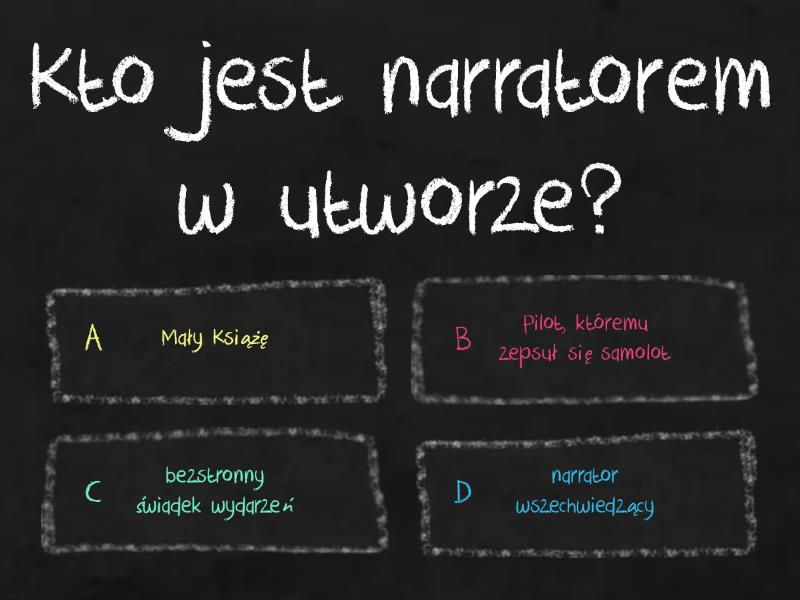 Kto jest narratorem
w utworze?
A Mały Książę
B Pilot, któremu
zepsuł się samolot
C bezstronny
świadek wydarzeń
D narrator
wszechwiedzący